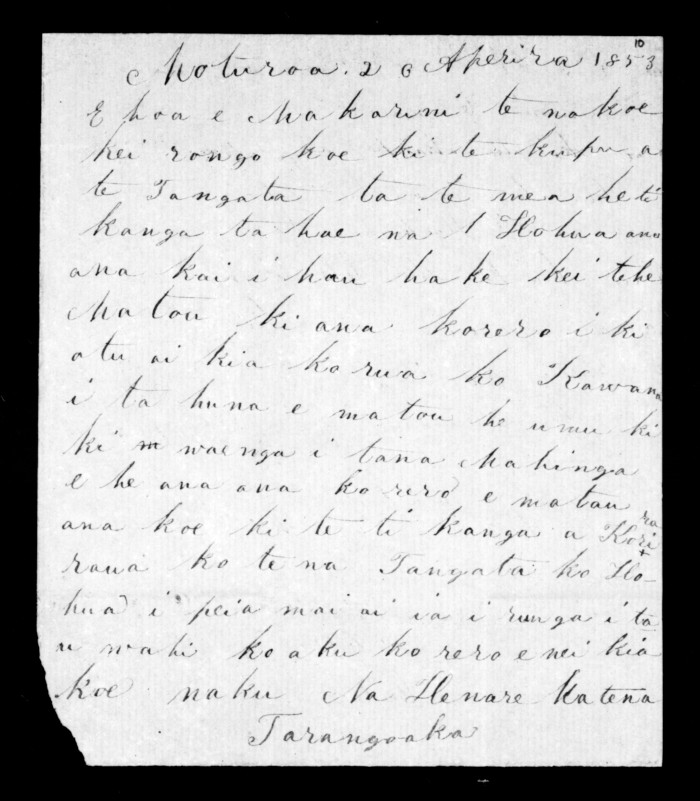 10
Moturoa. 26 Aperira 1853
E hoa e Makarini te na koe
kei rongo koe ki te kupu a
te Tangata ta te mea he ti
kanga ta hae na / Hohua ano
ana kai i hau hake kei tehe
Matou ki ana korero i ki
atu ai kia ko rua ko Kawana
i ta huna e matou he umu ki
ki waenga i tana Mahinga
e he ana ana ko rero e matau
ana koe ki te ti kanga a Kori
ra
raua ko te na Tangata ko Ho-
hua i peia mai ai ia i runga i ta
u wahi ko aku ko rero e nei kia
koe naku Na Henare Katena
Tarangoaka